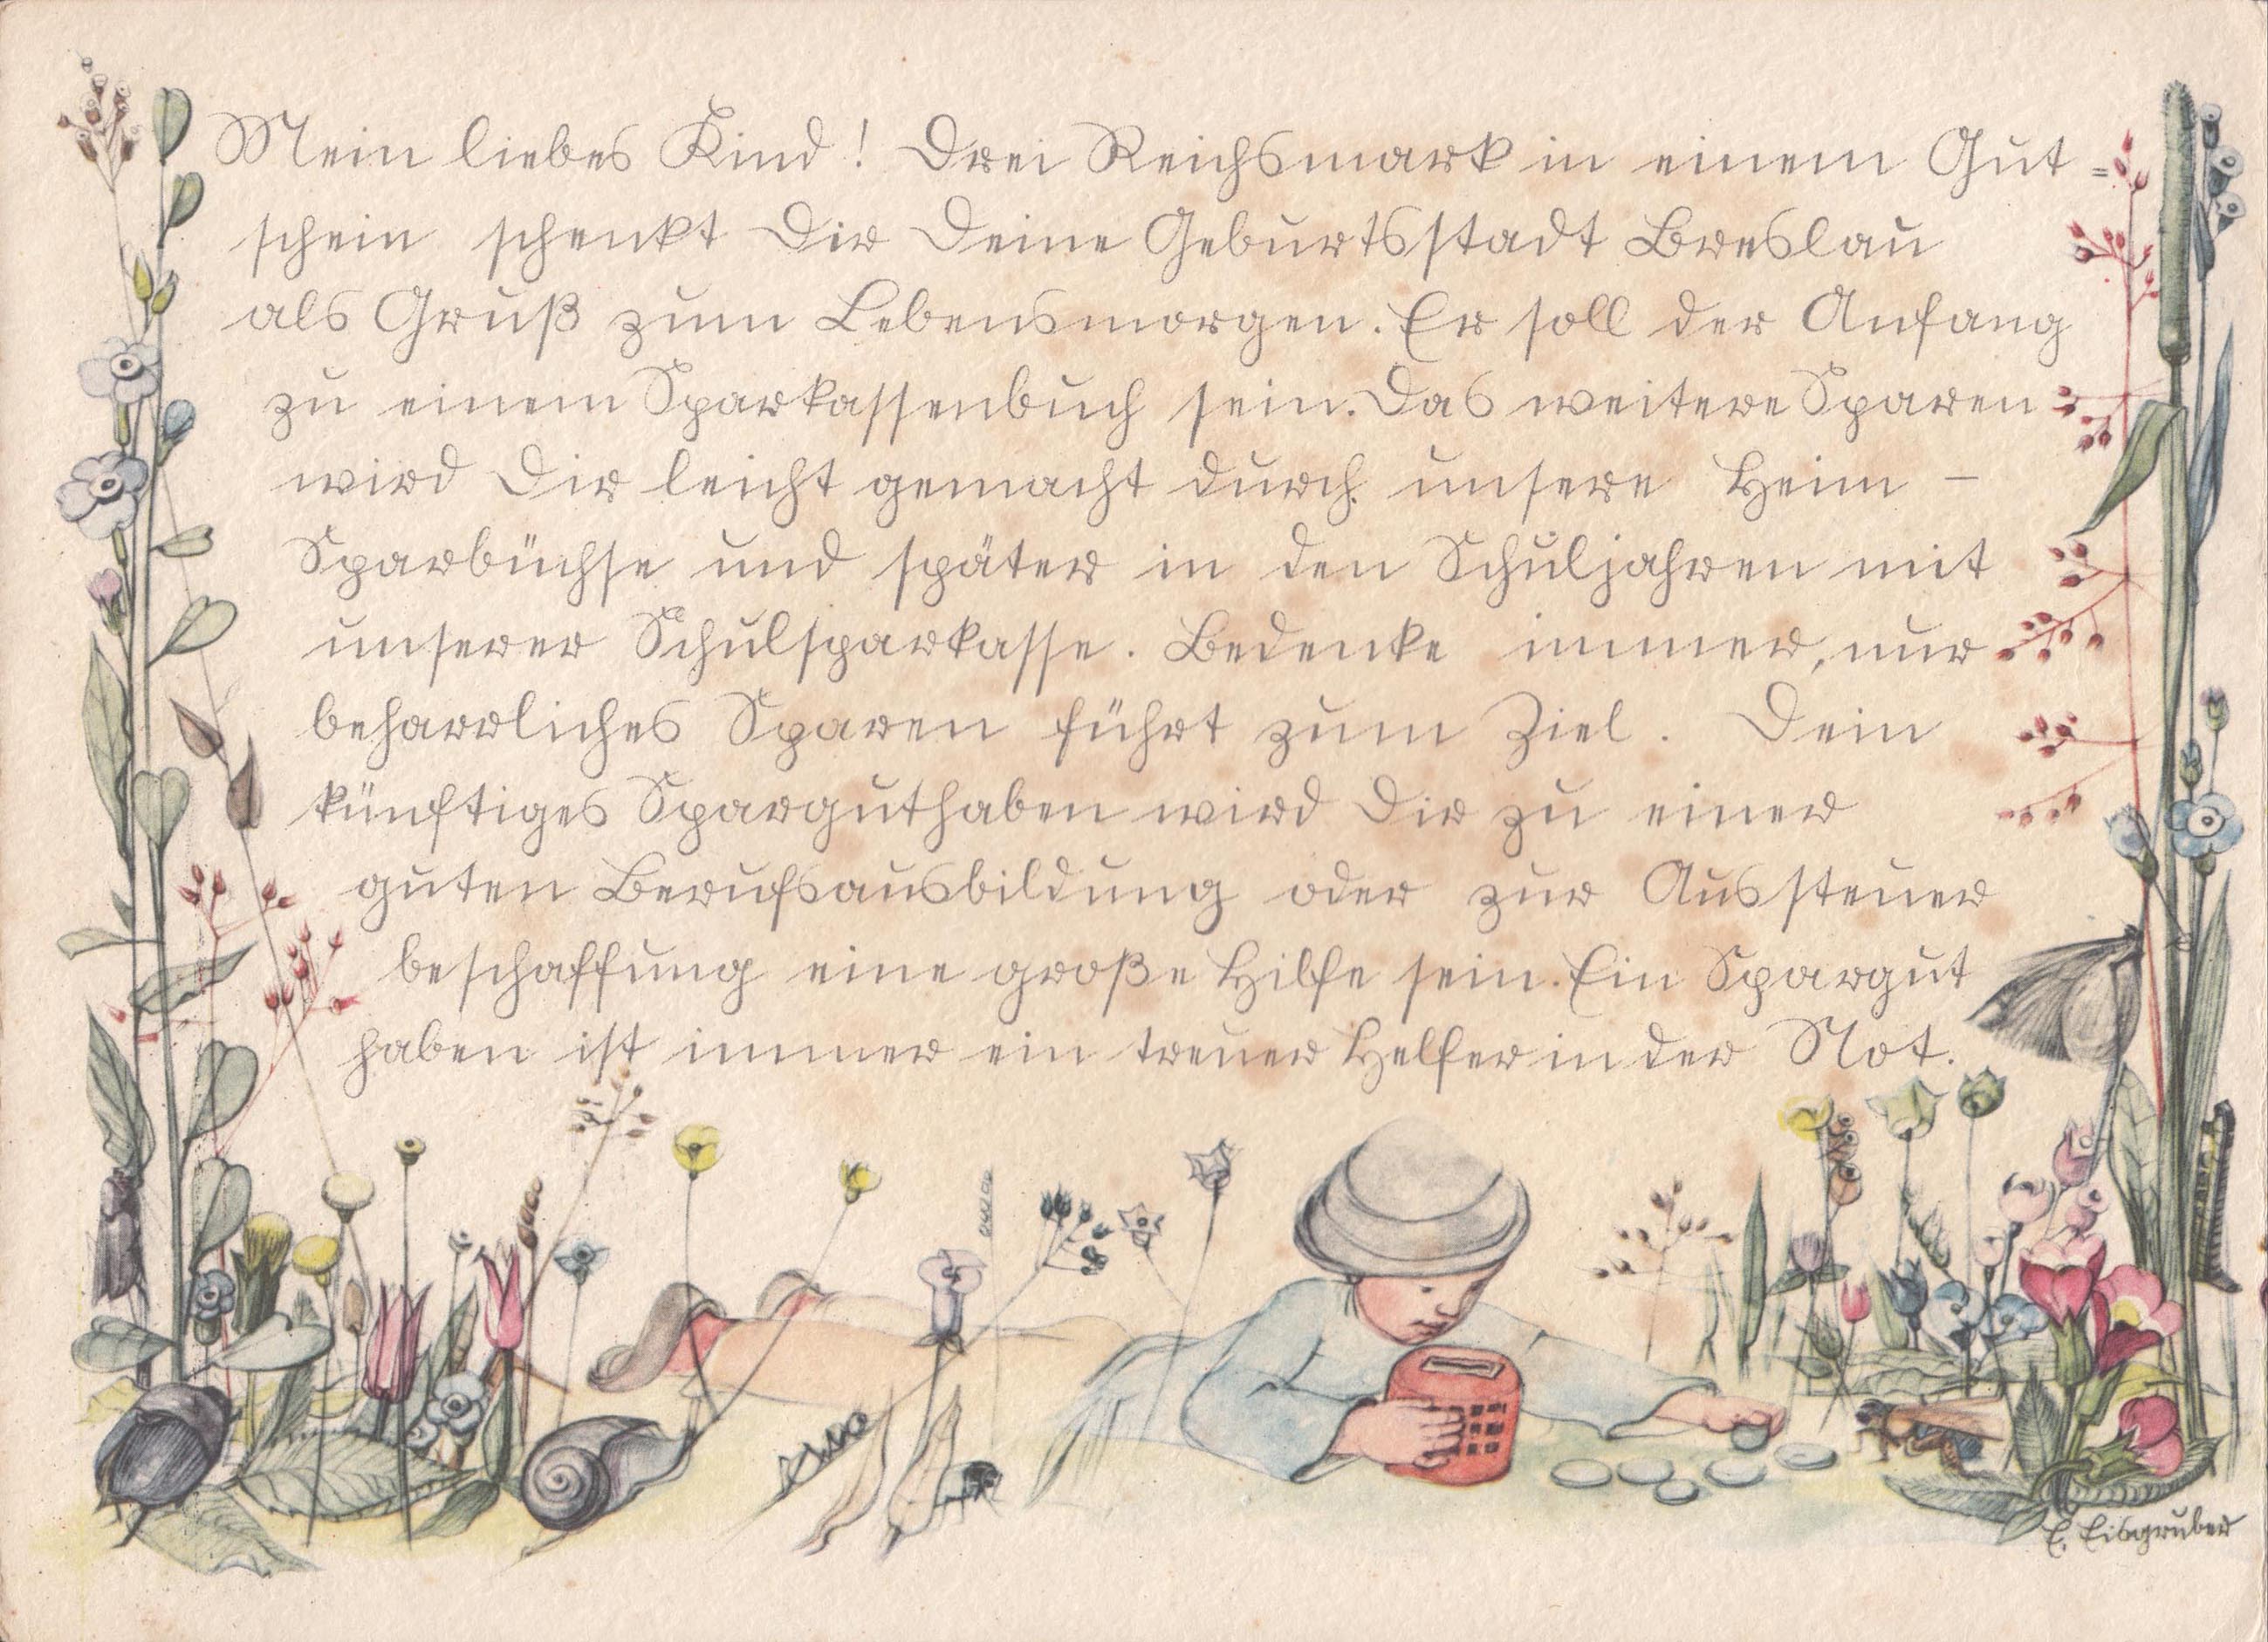 Mein liebes Kind! Drei Reichsmark in einem Gut=
schein schenkt Dir Deine Geburtsstadt Breslau
als Gruß zum Lebensmorgen. Er soll der Anfang
zu einem Sparkassenbuch sein. Das weitere Sparen
wird Dir leicht gemacht durch unsere Heim –
Sparbüchse und später in den Schuljahren mit
unserer Schulsparkasse. Bedenke immer, nur
beharrliches Sparen führt zum Ziel. Dein
künftiges Sparguthaben wird Dir zu einer
guten Berufsausbildung oder zur Aussteuer
beschaffung eine große Hilfe sein. Ein Spargut
haben ist immer ein treuer Helfer in der Not.
E. Eisgruber